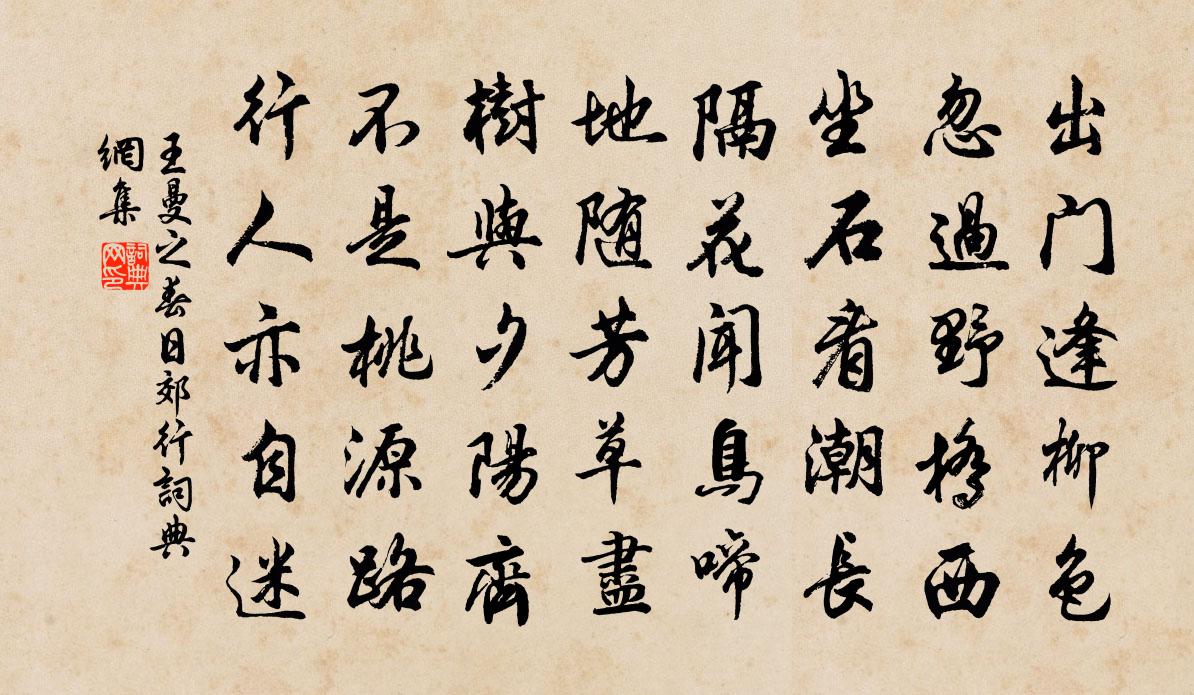 出门逢柳色
忽過野橋西
坐石看潮長
隔花聞鳥啼
地随芳草盡
樹與夕陽齊
不是桃源路
行人亦自迷
王曼之春日郊行詞典
網集
詞典
网印